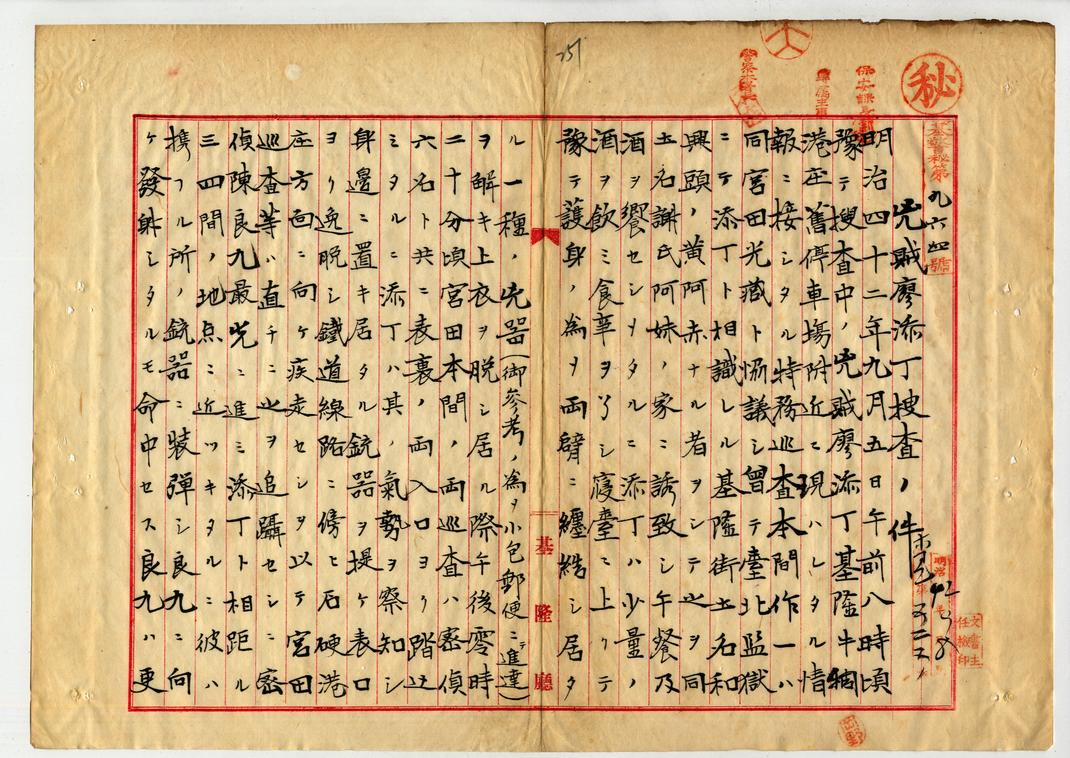 秘
保安課長
警察本署長
251
基警秘第九六四號
兇賊廖添丁捜査ノ件
明治四十二年九月五日午前八時頃
豫テ捜査中ノ兇賊廖添丁基隆牛稠
港庄舊停車場附近ニ現ハレタル情
報ニ接シタル特務巡査本間作一ハ
同宮田光蔵ト協議シ曾テ臺北監獄
ニテ添丁ト相識レル基隆街土名和
興頭ノ黄阿赤ナル者ヲシテ之ヲ同
土名謝氏阿妹ノ家ニ誘致シ午餐及
酒ヲ饗セシメタルニ添丁ハ少量ノ
酒ヲ飲ミ食事ヲ了シ寝臺ニ上リテ
豫テ護身ノ為メ両臂ニ纏絡シ居タ
基隆廳
ル一種ノ兇器(御参考ノ為メ小包郵便ニテ進達)
ヲ解キ上衣ヲ脱シ居ル際午後零時
二十分頃宮田本間ノ両巡査ハ密偵
六名ト共ニ表裏ノ両入口ヨリ踏込
ミタルニ添丁ハ其ノ氣勢ヲ察知シ
身邊ニ置キ居タル銃器ヲ提ケ表口
ヨリ逸脱シ鐵道線路ニ傍ヒ石硬港
庄方向ニ向ケ疾走セシヲ以テ宮田
巡査等ハ直チニ之ヲ追躡セシニ密
偵陳良九最先ニ進ミ添丁ト相距ル
三四間ノ地点ニ近ツキタルニ彼ハ
携フル所ノ銃器ニ装弾シ良九ニ向
ケ發射シタルモ命中セス良九ハ更
文書主任檢印